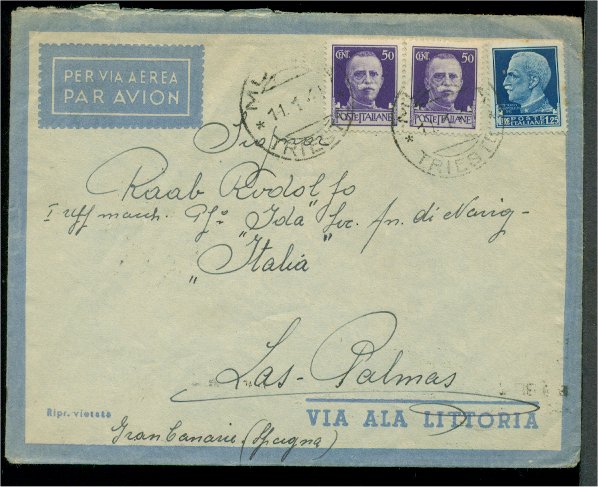 PER VIA AEREA
PAR AVION
CENT. 50
POSTE ITALIANE
CENT. 50
POSTE ITALIANE
POSTE
ITALIANE 1,25
11.1
* TRIESTE
* TRIESTE
Signor
Raab Rodolfo
I uff macch. Pfo "Ida" Soc. An. di Navig-
"Italia"
Las-Palmas
Ripr. vietata
VIA ALA LITTORIA
Gran Canarie (Spagna)